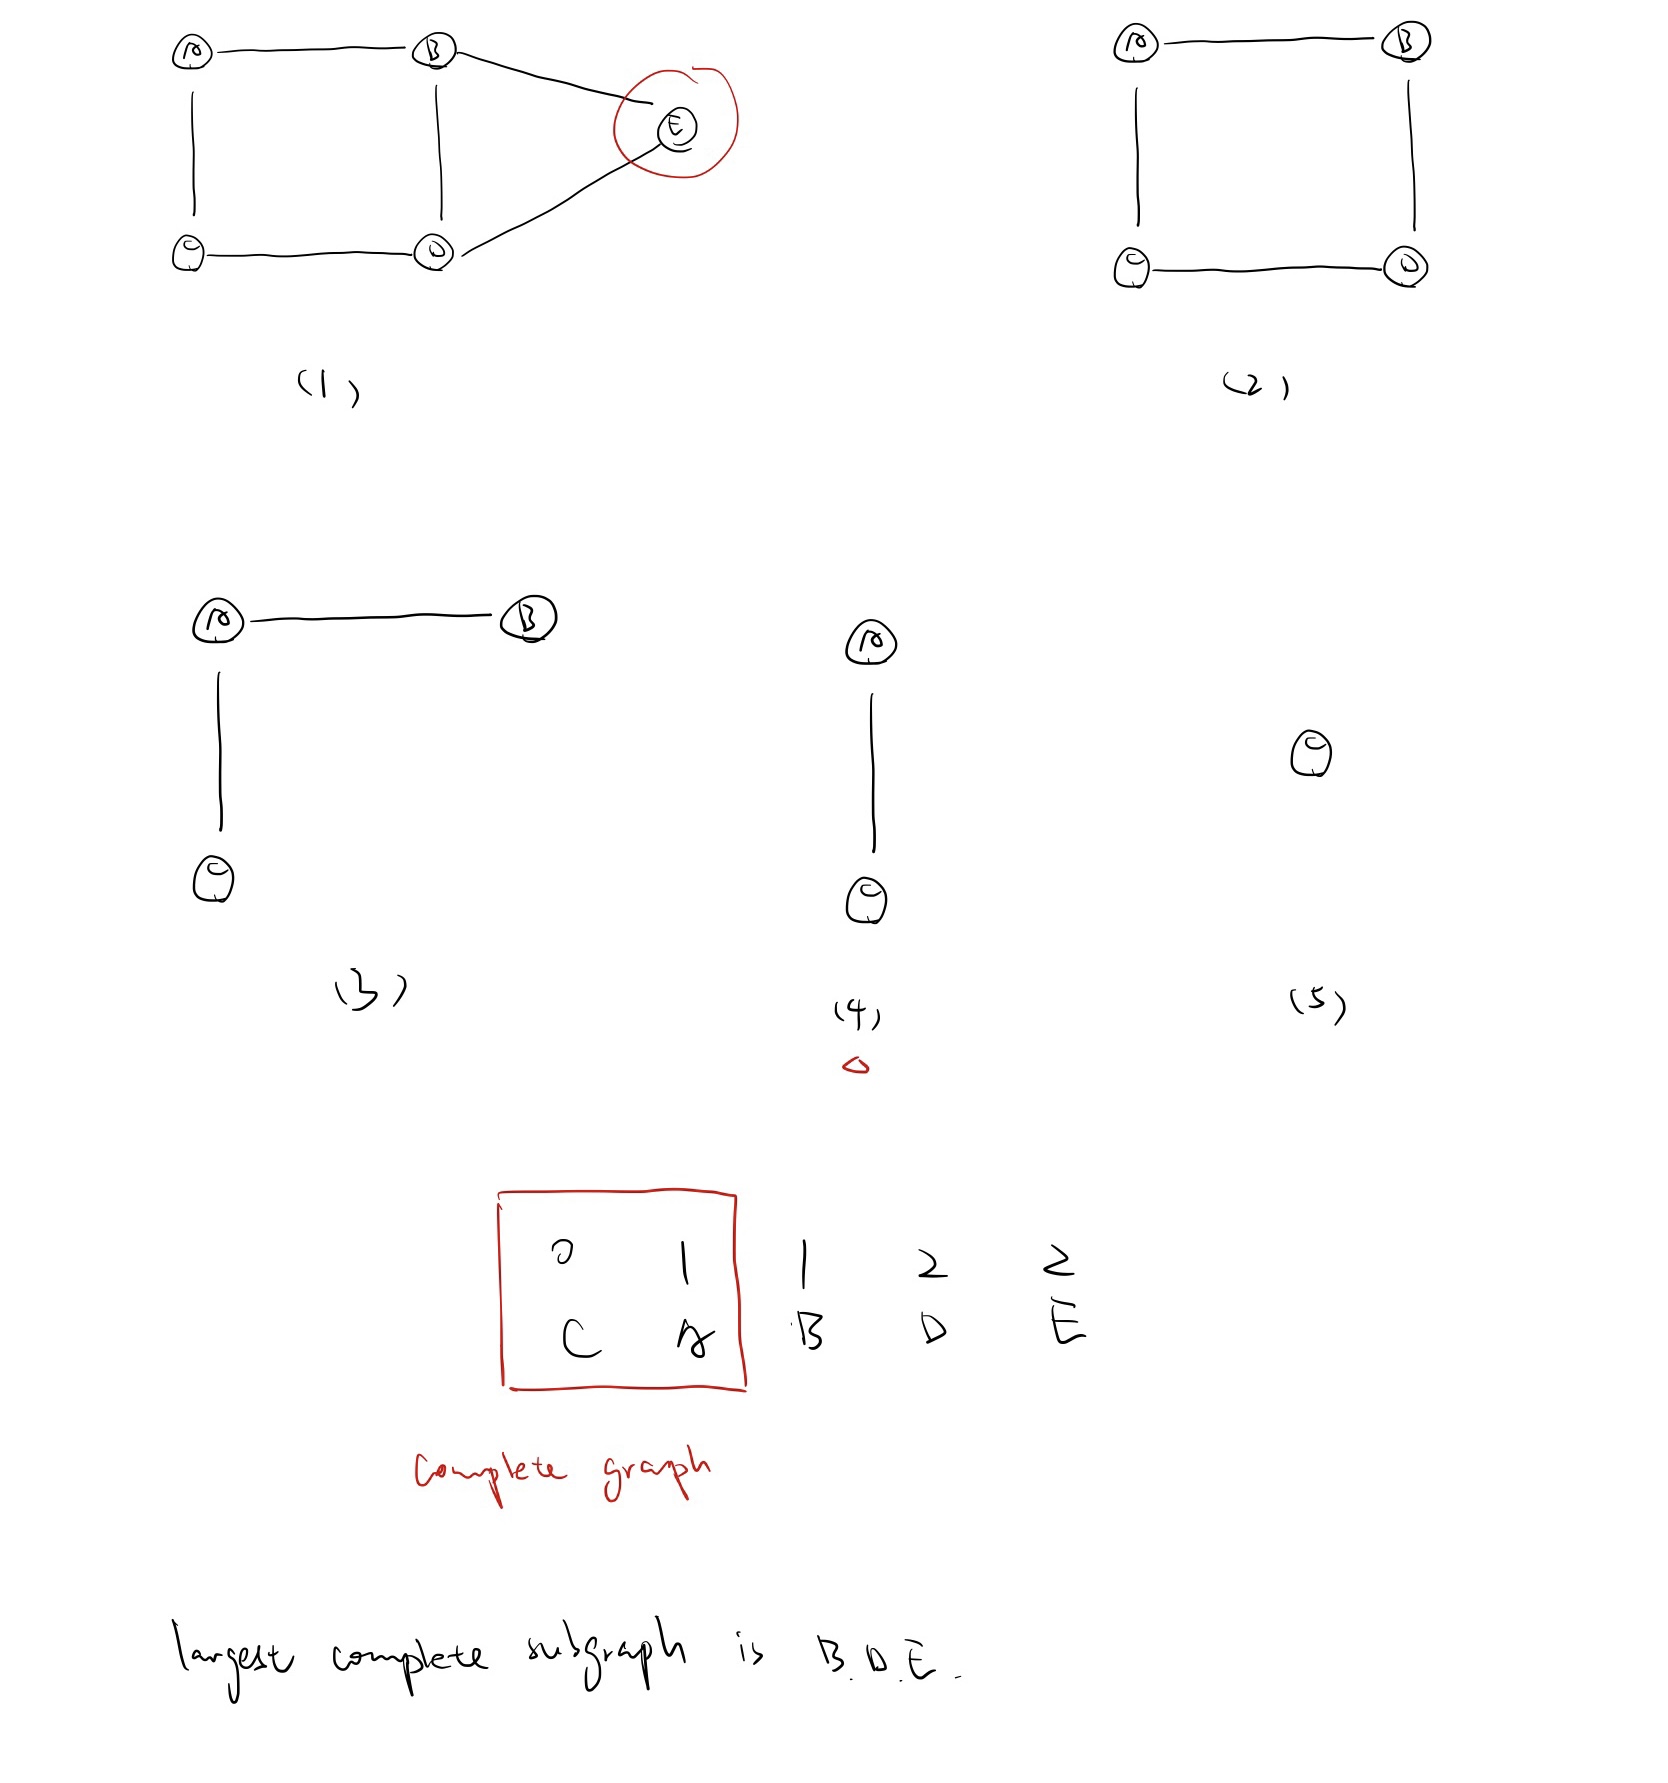 A B
E
C D
(1)
A B
C D
(2)
A B
C
(3)
A
C
(4)
C
(5)
0 1 1 2 2
C A B D E
Complete graph
largest complete subgraph is B.D.E.